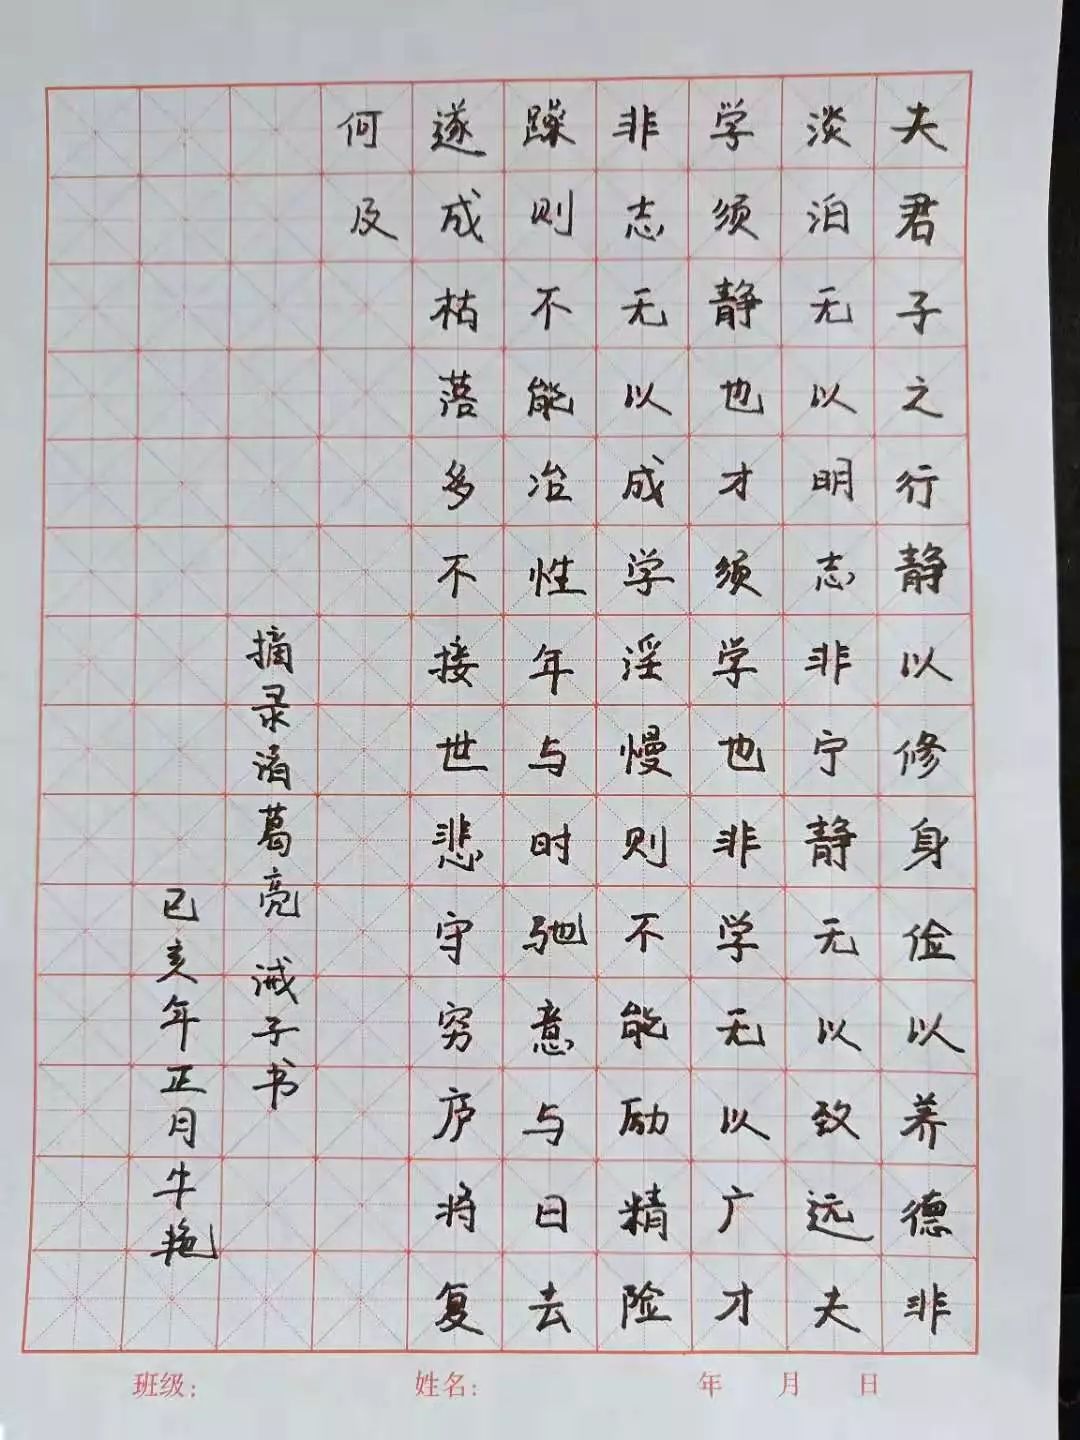 夫君子之行静以修身俭以养德非
淡泊无以明志非宁静无以致远夫
学须静也才须学也非学无以广才
非志无以成学淫慢则不能励精险
躁则不能冶性年与时驰意与日去
遂成枯落多不接世悲守穷庐将复
何及
摘录诸葛亮诫子书
己亥年正月牛艳
班级： 姓名： 年 月 日